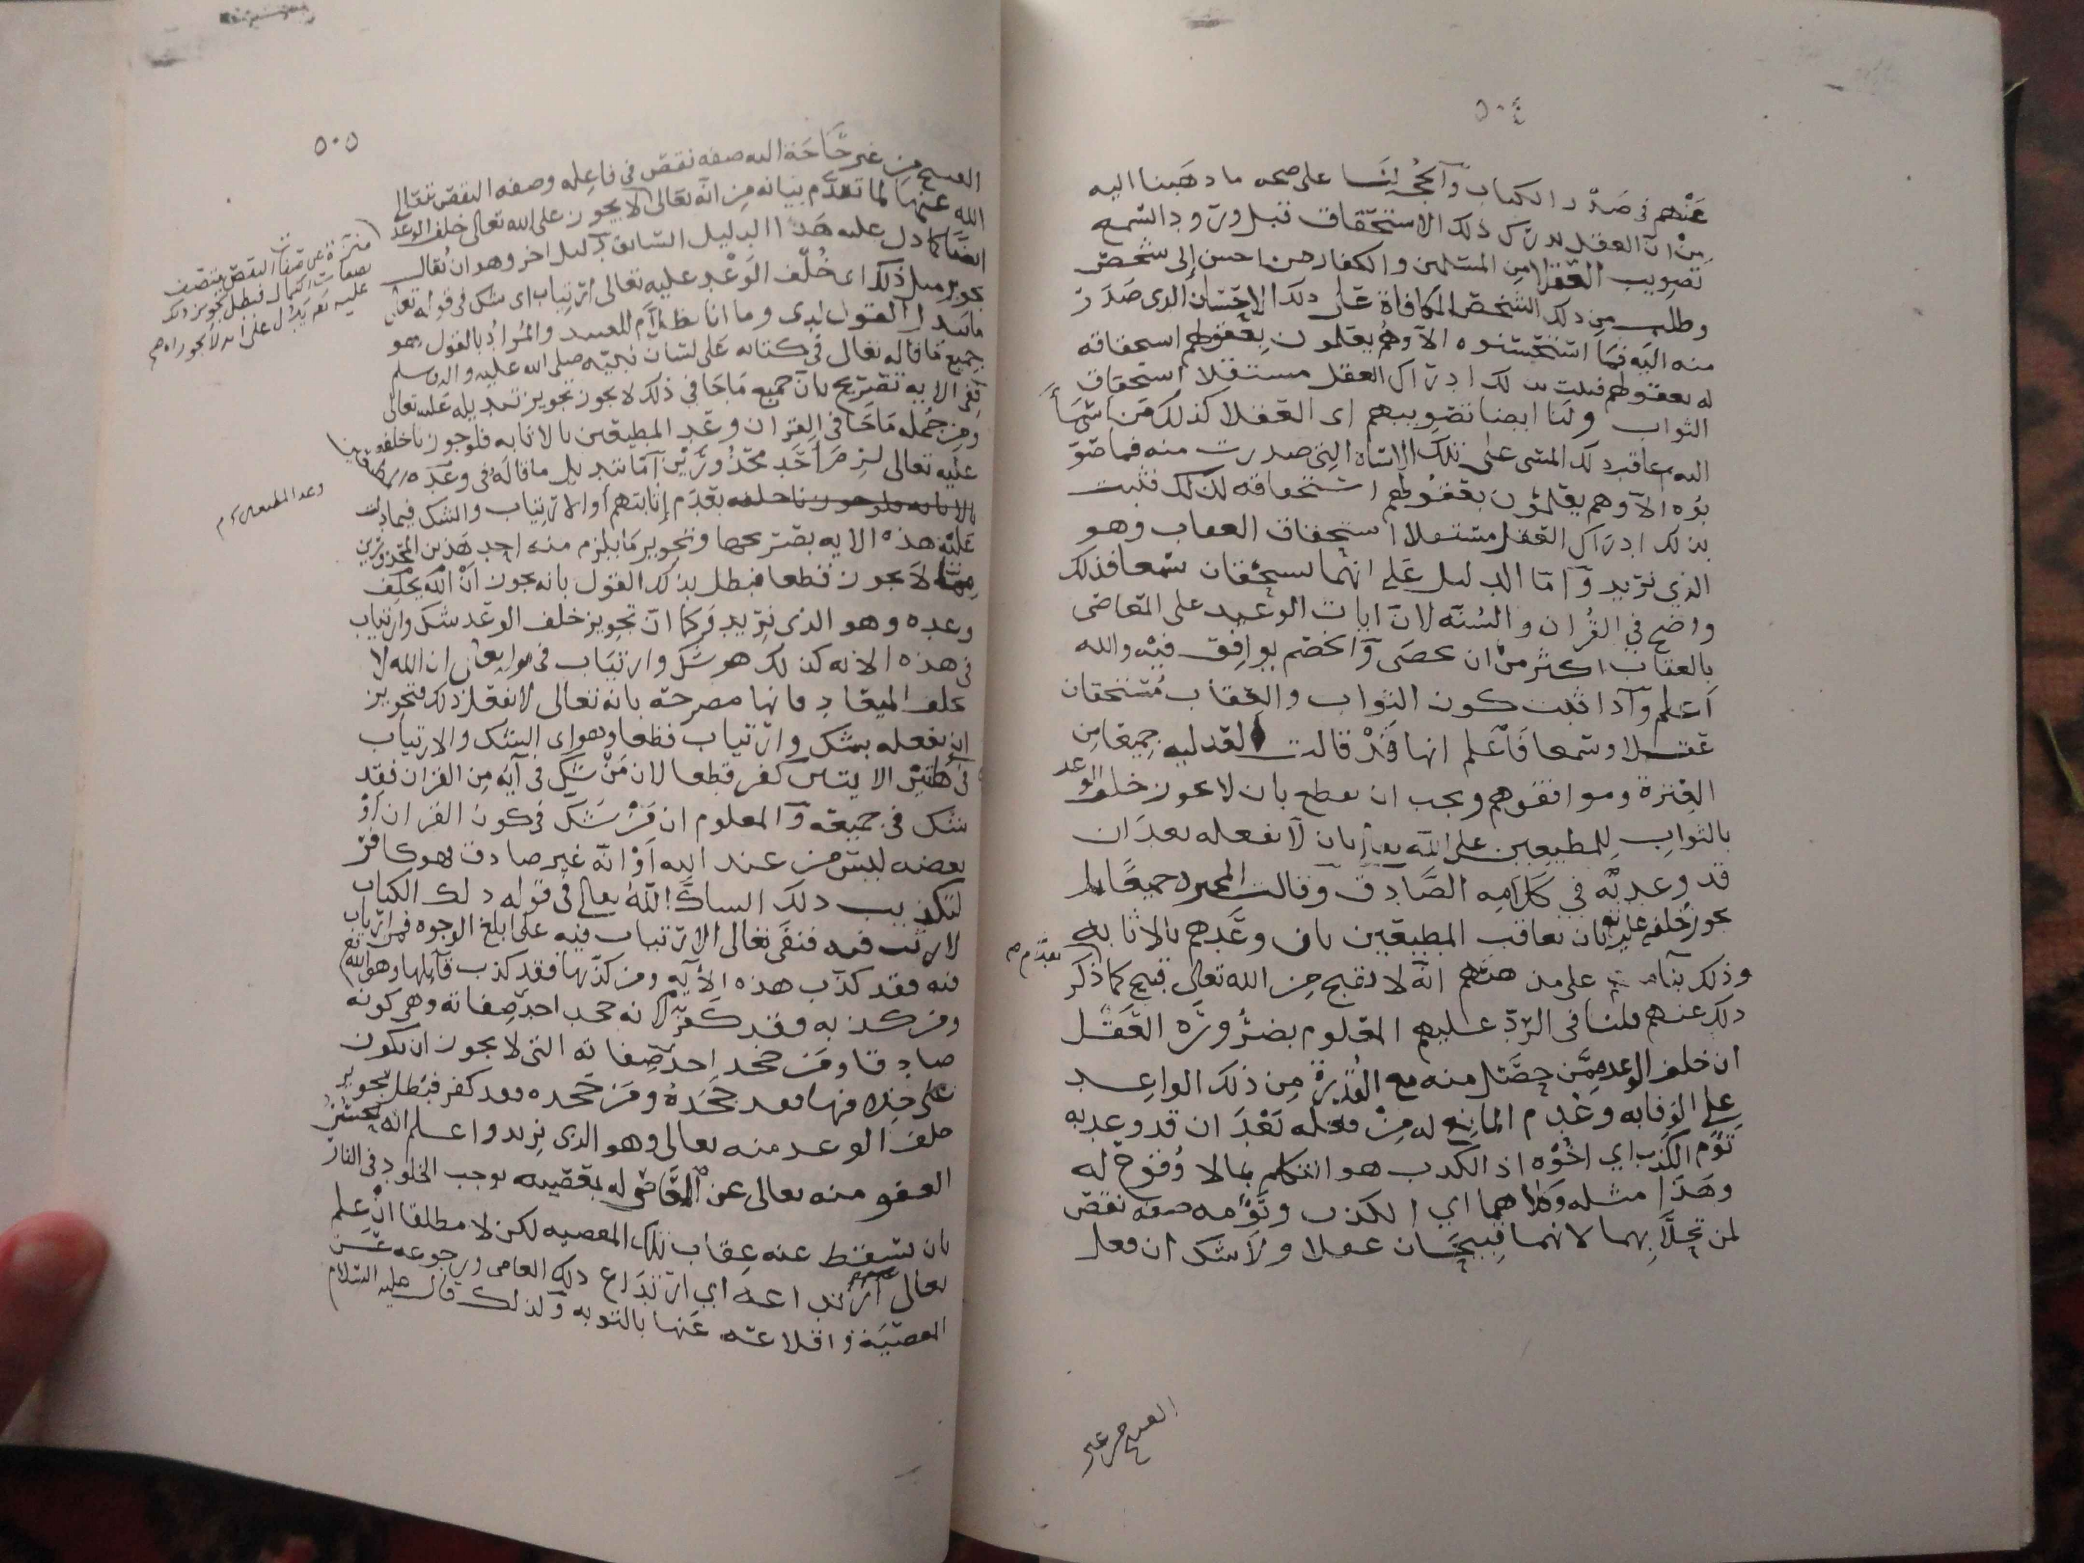 ٥٠٤
عنهم في صدر الكتاب والحجة لنا على صحه ما ذهبنا اليه
من ان العقل يدرك ذلك الاستحقاق قبل ورود السمع
تصويب العقلا من المسلمين والكفار من احسن إلى شخص
وطلب من ذلك الشخص المكافاة على ذلك الاحسان الذي صدر
منه اليه فما استحسنوه الا وهم يعلمون بعقولهم استحقاقه
له بعقولهم فثبت بذلك ادراك العقل مستقلا استحقاق
الثواب ولنا ايضا تصويبهم اى العقلا كذلك من اساء
اليه عاقب ذلك المسى على تلك الاساة التي صدرت منه فما صو
بوه الا وهم يعلمون بعقولهم استحقاقه لذلك فثبت
بذلك ادراك العقل مستقلا استحقاق العقاب وهو
الذي نريد وامّا الدليل على انهما يستحقان سمعا فذلك
واضح في القُرأن والسُنّه لان ايات الوعيد على المعاصى
بالعقاب اكثر من ان تحصى والخصم يوافق فيه والله
أعلم واذا ثبت كون الثواب والعقاب مُستحقان
عقلا وسمعا فاعلم انها قَدْ قالت العدليه جميعا من
العترة وموافقوهم ويجب ان يقطع بان لا يجوز خلف الوعد
بالثواب للمطيعين على الله تعالى بان لا يفعله بعد ان
قد وعد به في كلامه الصّادق وقالت المجبره جميعًا بل
يجوز خُلفه عليه تعالى بان يعاقب المطيعين بان وعدهم بالاثابه
تقدم م
وذلك بناء على مذهبهم انه لا يقبح من الله تعالى قبيح كما ذكر
ذلك عنهم قلنا في الرد عليهم المعلوم بضرُورة العَقل
ان خلف الوعد ممّن حصَل منه مع القُدرة من ذلك الواعد
على الوفا به وعدم المانع له من فعله بَعْدَ ان قد وعد به
تؤم الكذب اي اخُوه اذ الكذب هو التكلم بما لا وُقوع له
وهَذَا مثله وكلاهما اي الكذب وتؤامه صفه نقص
لمن تحلّا بهما لانهما قبيحَان عقلا ولاَ شك ان فعل
القبيح من غير
٥٠٥
القبيح من غير حَاجَة اليه صفه نقص في فاعله وصفه النقص تتعالى
الله عنها لما تقدم بيانه من انّه تعالى
لا يجوز على الله تعالى خلف الوعد
منزه عن صفات النقص متصف
بصفات الكمال فبطل تجويز ذلك
عليه ثم يدل على انه لا يجوز
ايضًا كما دل عليه هذا الدليل السّابق دليل اخر وهو ان يُقال
تجويز مثل ذلك اى خُلف الوَعْد عليه تعالى ارتياب اى شك في قوله تعالى
ما يبدل القول لدى وما انا بظلام للعبيد والمُراد بالقول هو
جميع ما قاله تعالى في كتابه عَلى لسَان نبيّه صلى الله عليه واله وسلم
ففي الايه تصريح بان جميع مَا جَا في ذلك لا يجوز تجويز تبديله عليه تعالى
ومن جُمله مَا جَا في القران وعَد المطيعين بالاثابه فلو جوزنا خلفه
عليه تعالى لزم احد محذُورَيْن امّا تبديل ما قاله في وعده
وعد المطيعين م
بالاثابه فلو جوزنا خلفه بعدم إثابتهم او الارتياب والشك فيما دلت
عليه هذه الايه بصريحها وتجوير ما يلزم منه احد هذين المحذورين
لا يجوز قطعا فبطل بذلك القول بانه يجوز ان الله يخلف
وعده وهو الذي نريد وكما ان تجويز خلف الوعد شك وارتياب
في هذه الايه كذلك هو شك وارتياب في قوله تعالى ان الله لا
يخلف الميعاد فانها مصرحه بانه تعالى لا يفعل ذلك فتجويز
ان يفعله شك وارتياب قطعا وهو اى الشك والارتياب
في هاتين الايتين كفر قطعا لان مَنْ شك في آية من القران فقد
شك في جميعه والمعلوم ان مَنْ شَكّ في كون القران اوْ
بعضه ليس من عند الله اوْ انّه غير صادق فهو كافر
لتكذيب ذلك الشاك الله تعالى في قوله ذلك الكتاب
لا ريب فيه فنفى تعالى الارتياب فيه على ابلغ الوجوه فمن ارتاب
فيه فقد كذّب هذه الأيه ومن كذّبها فقد كذب قائلها وهو الله
ومن كذبه فقد كَفر لانه جحد احد صفاته وهى كونه
صادقا ومَن جحد احد صِفاته التى لا يجوز ان يكون
على خلافها فقد جَحَدَهُ ومَن جَحَده فقد كفر فبطل تجويز
خلف الوعد منه تعالى وهو الذى نريد واعلم انه يحسُن
العفو منه تعالى عن العَاصي له بمعصيه توجب الخلود في النار
بان يسقط عنه عقاب تلك المعصيه لكن لا مطلقا انْ علم
تعالى ارتداعه اي ارتدَاع ذلك العاصى ورجوعه عن
المعصيَة واقلاعه عَنها بالتوبه ولذلك قال عليه السّلام